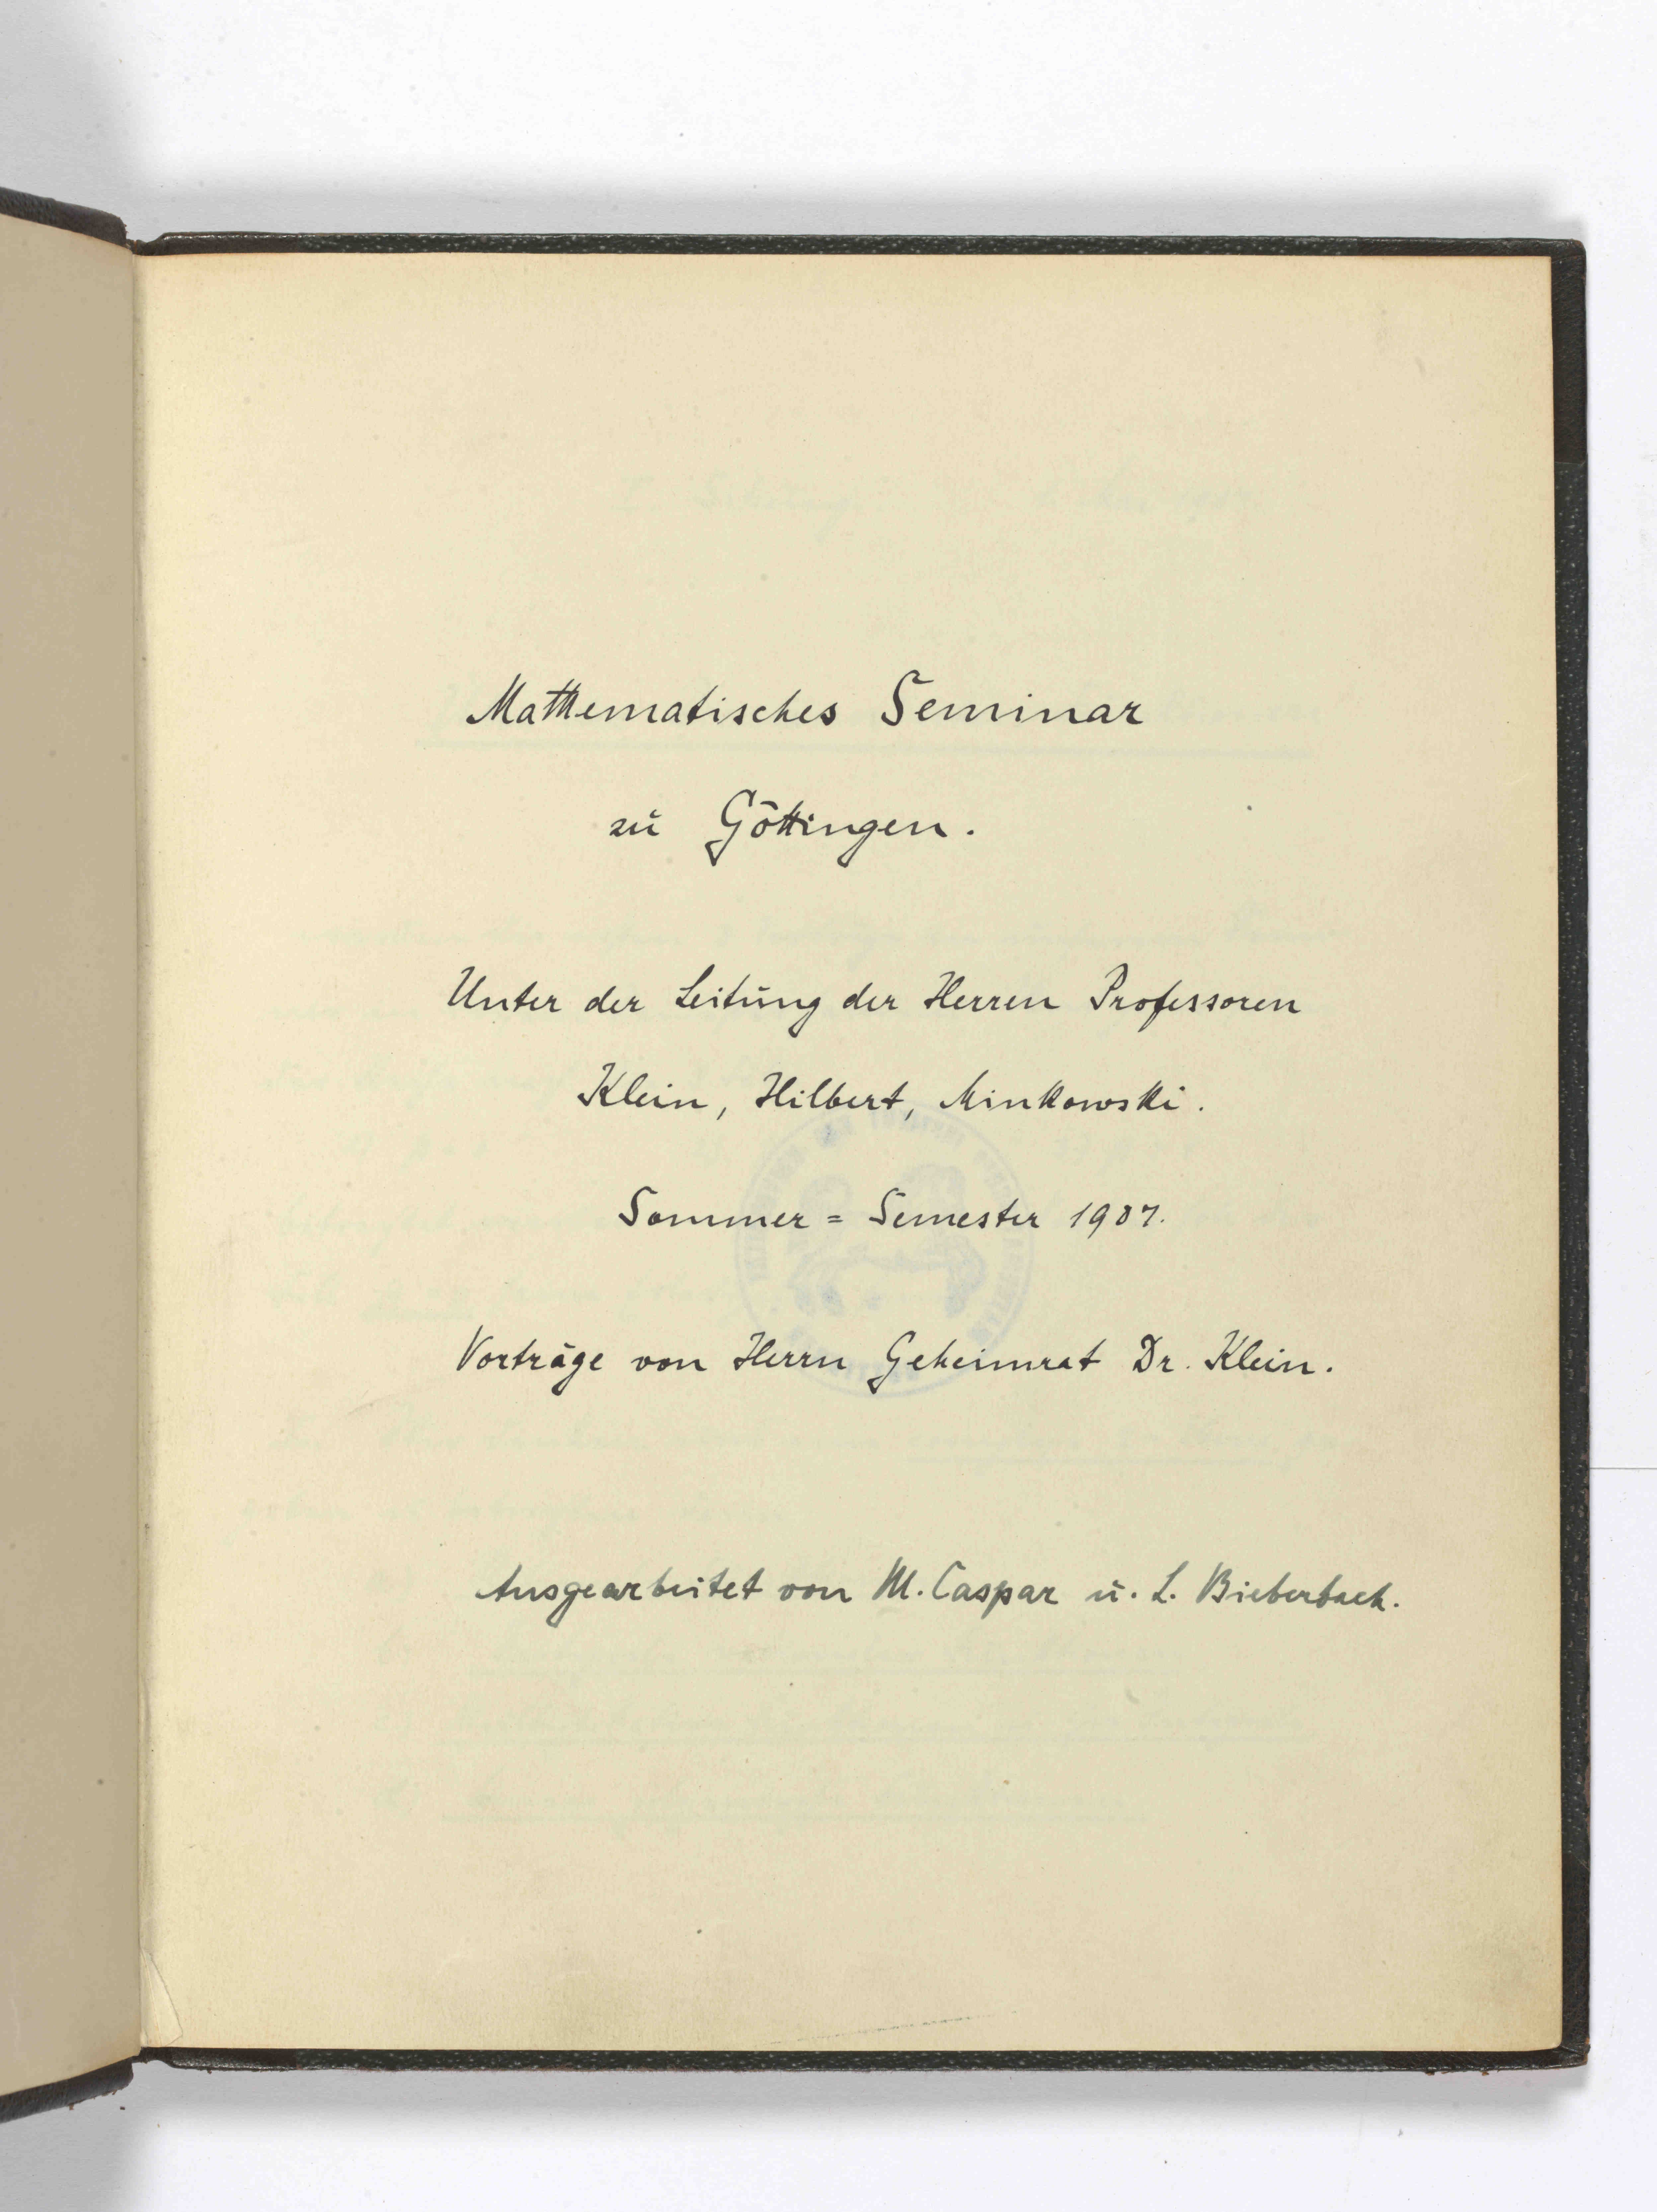 Mathematisches Seminar
zu Göttingen.
Unter der Leitung der Herren Professoren
Klein, Hilbert, Minkowski.
Sommer = Semester 1907.
Vorträge von Herrn Geheimrat Dr. Klein.
Ausgearbeitet von M. Caspar u. L. Bieberbach.